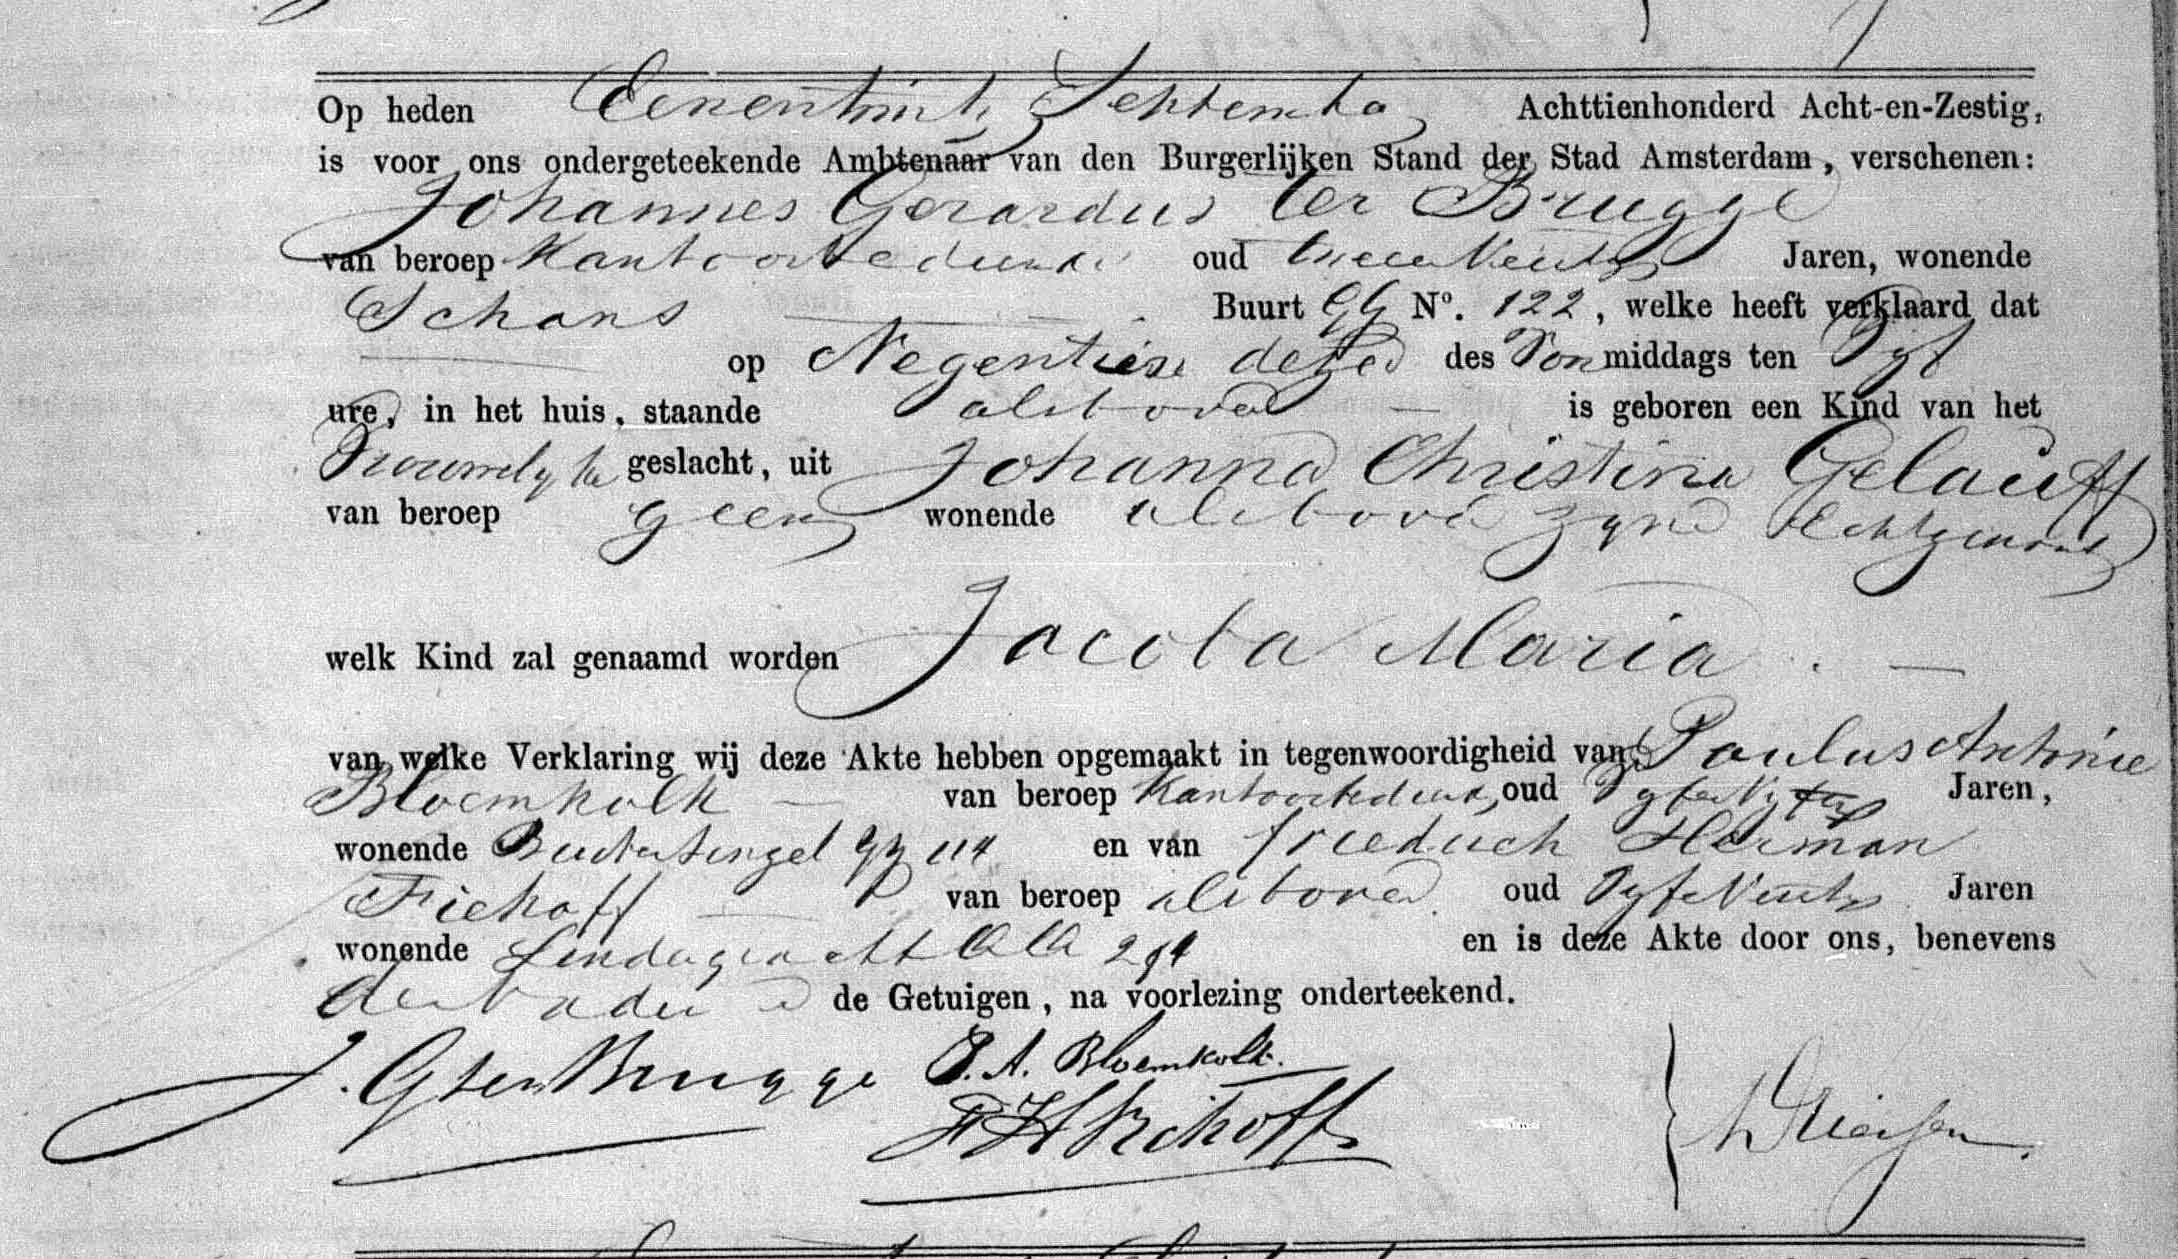 Op heden Eenentwintig September Achttienhonderd Acht-en-Zestig,
is voor ons ondergeteekende Ambtenaar van den Burgerlijken Stand der Stad Amsterdam, verschenen:
Johannes Gerardus ter Brugge
van beroep Kantoorbediende oud Jaren, wonende
Schans Buurt QQ No. 122, welke heeft verklaard dat
op Negentien dezer des Voormiddags ten Vyf
ure, in het huis, staande alsboven is geboren een Kind van het
Vrouwelyke geslacht, uit Johanna Christina Gelauff
van beroep geen wonende alsboven zyne Echtgenoote
welk Kind zal genaamd worden Jacoba Maria
van welke Verklaring wij deze Akte hebben opgemaakt in tegenwoordigheid van Paulus Antonie
Bloemkolk van beroep Kantoorbediende, oud Jaren,
wonende Buitensingel 114 en van Friedrich Herman
Fiehoff van beroep alsboven oud Vyfentwintig Jaren
wonende Lindegracht en is deze Akte door ons, benevens
den vader en de Getuigen, na voorlezing onderteekend.
J. G ter Brugge P. A. Bloemkolk.
F H Fiehoff